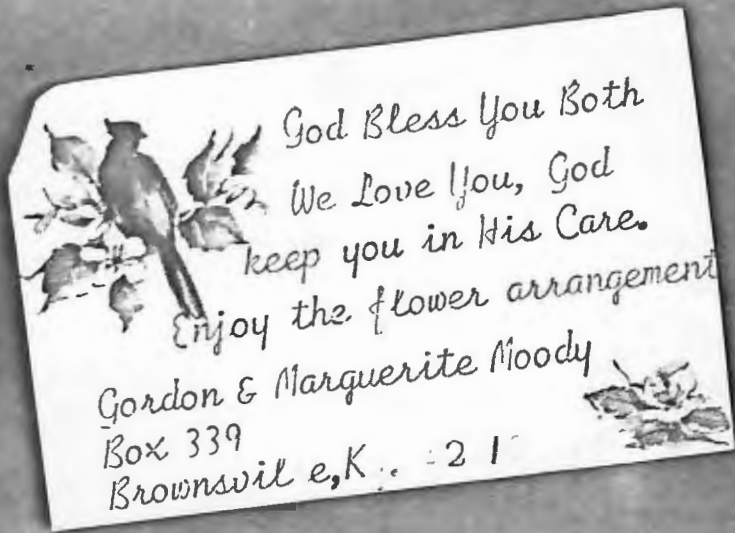 God Bless You Both
We Love You, God
keep you in His Care.
Enjoy the flower arrangement
Gordon & Marguerite Moody
Box 339
Brownsvil e,